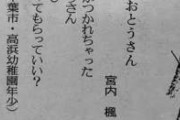 おとうさん
宮内 楓
がつかれちゃった
さん
てもらっていい？
葉市・高浜幼稚園年少)